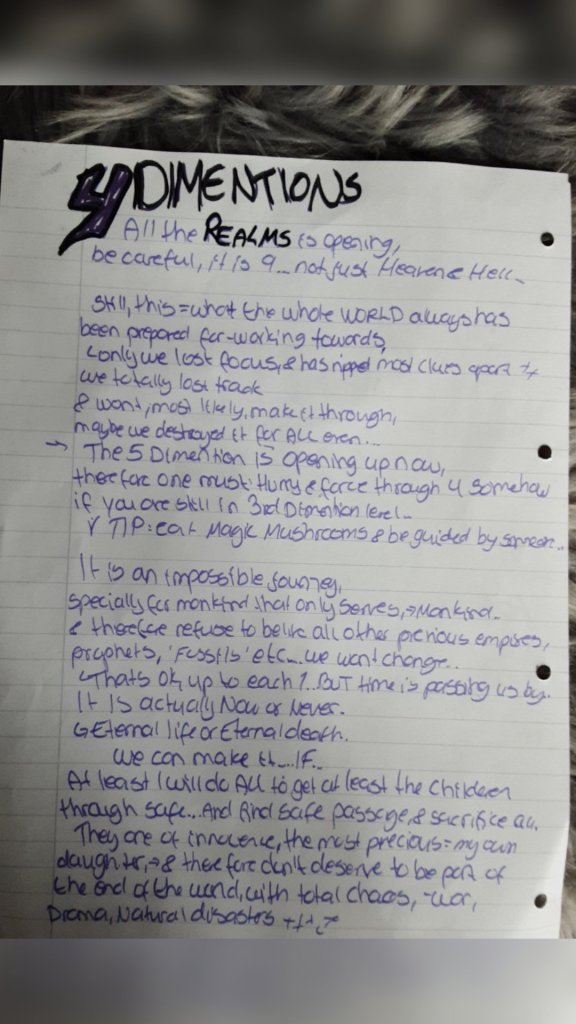 4 DIMENTIONS
All the REALMS is opening,
be careful, it is 9... not just Heaven & Hell..
Still, this = what the whole WORLD always has
been prepared for - working towards,
only we lost focus, & has ripped most clues apart ++
we totally lost track
& wont, most likely, make it through,
maybe we destroyed it for ALL even...
→ The 5 Dimention is opening up now,
therefore one must Hurry & force through 4 somehow
if you are still in 3rd Dimention level..
TIP: eat Magic Mushrooms & be guided by someone..
It is an impossible journey,
specially for mankind that only serves, → Mankind..
& therefore refuse to belive all other previous empires,
prophets, 'Fossils' etc... we wont change..
Thats Ok, up to each 1.. BUT time is passing us by.
It is actually Now or Never.
Eternal life or Eternal death.
We can make it.... IF..
At least I will do ALL to get at least the Children
through safe... And find safe passage, & sacrifice all.
They are of innocence, the most precious = my own
daughter, → & therefore don't deserve to be part of
the end of the world, with total chaos, - War,
Drama, Natural disasters +++